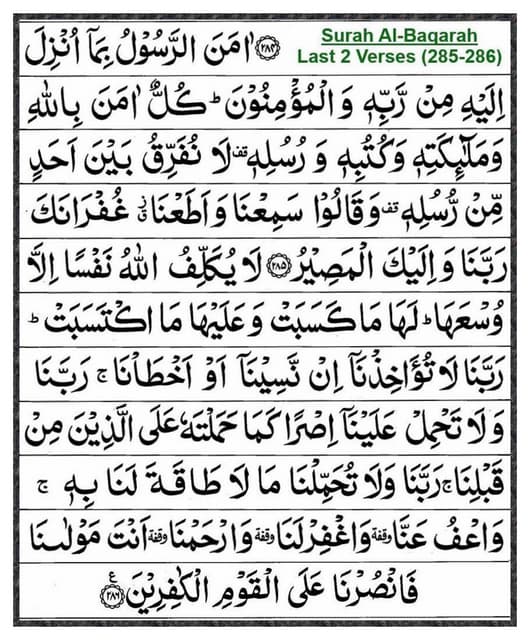 Surah Al-Baqarah
Last 2 Verses (285-286)
﴿۲۸۴﴾ اٰمَنَ الرَّسُوْلُ بِمَاۤ اُنْزِلَ
اِلَيْهِ مِنْ رَّبِّهٖ وَالْمُؤْمِنُوْنَ ؕ كُلٌّ اٰمَنَ بِاللّٰهِ
وَمَلٰٓئِكَتِهٖ وَكُتُبِهٖ وَرُسُلِهٖ قف لَا نُفَرِّقُ بَيْنَ اَحَدٍ
مِّنْ رُّسُلِهٖ قف وَقَالُوْا سَمِعْنَا وَاَطَعْنَا ز غُفْرَانَكَ
رَبَّنَا وَاِلَيْكَ الْمَصِيْرُ ﴿۲۸۵﴾ لَا يُكَلِّفُ اللّٰهُ نَفْسًا اِلَّا
وُسْعَهَا ؕ لَهَا مَا كَسَبَتْ وَعَلَيْهَا مَا اكْتَسَبَتْ ؕ
رَبَّنَا لَا تُؤَاخِذْنَاۤ اِنْ نَّسِيْنَاۤ اَوْ اَخْطَاْنَا ۚ رَبَّنَا
وَلَا تَحْمِلْ عَلَيْنَاۤ اِصْرًا كَمَا حَمَلْتَهٗ عَلَى الَّذِيْنَ مِنْ
قَبْلِنَا ۚ رَبَّنَا وَلَا تُحَمِّلْنَا مَا لَا طَاقَةَ لَنَا بِهٖ ۚ
وَاعْفُ عَنَّا وقفة وَاغْفِرْ لَنَا وقفة وَارْحَمْنَا وقفة اَنْتَ مَوْلٰىنَا
فَانْصُرْنَا عَلَى الْقَوْمِ الْكٰفِرِيْنَ ﴿۲۸۶﴾ ع